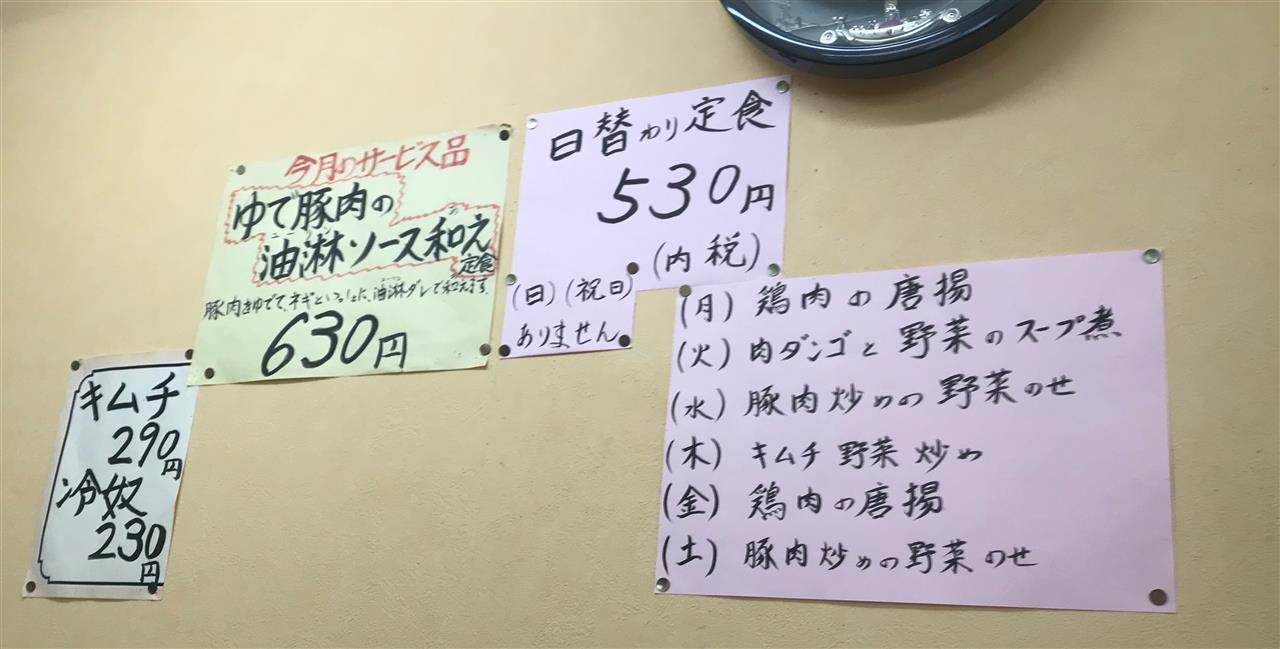 今月のサービス品
ゆで豚肉の
油淋ソース和え
定食
豚肉をゆでて、ネギといっしょに、油淋ダレで和えます。
630円
日替わり定食
530円
(内税)
(日)(祝日)
ありません
キムチ
290円
冷奴
230円
(月) 鶏肉の唐揚
(火) 肉ダンゴと野菜のスープ煮
(水) 豚肉炒めの野菜のせ
(木) キムチ野菜炒め
(金) 鶏肉の唐揚
(土) 豚肉炒めの野菜のせ